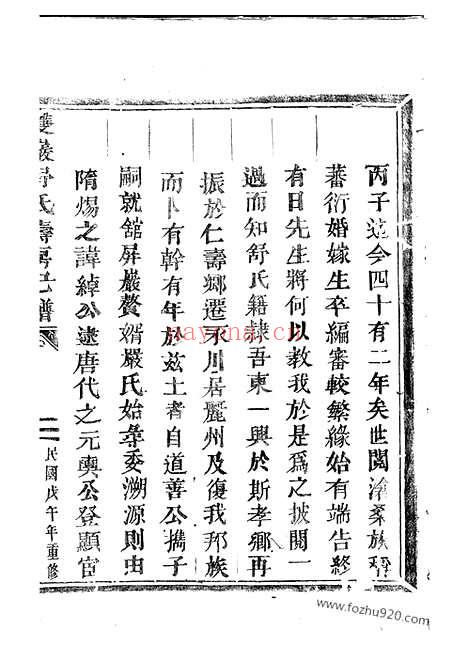 丙子迄今四十有二年矣世閱滄桑族稱
蕃衍婚嫁生卒編審較繁緣始有端告終
有日先生將何以教我於是為之披閱一
過而知舒氏籍隸吾東一興於斯孝鄉再
振於仁壽鄉遷牙川居麗州及復我邦族
而卜有幹有年於兹土者自道善公擕子
嗣就舘屏巖贅婿嚴氏始尋委溯源則由
隋煬之諱綽公逮唐代之元輿公登顯官
雙巖舒氏壽房七譜
二
民國戊午年重修
nayona.cn
www.fozhu920.com